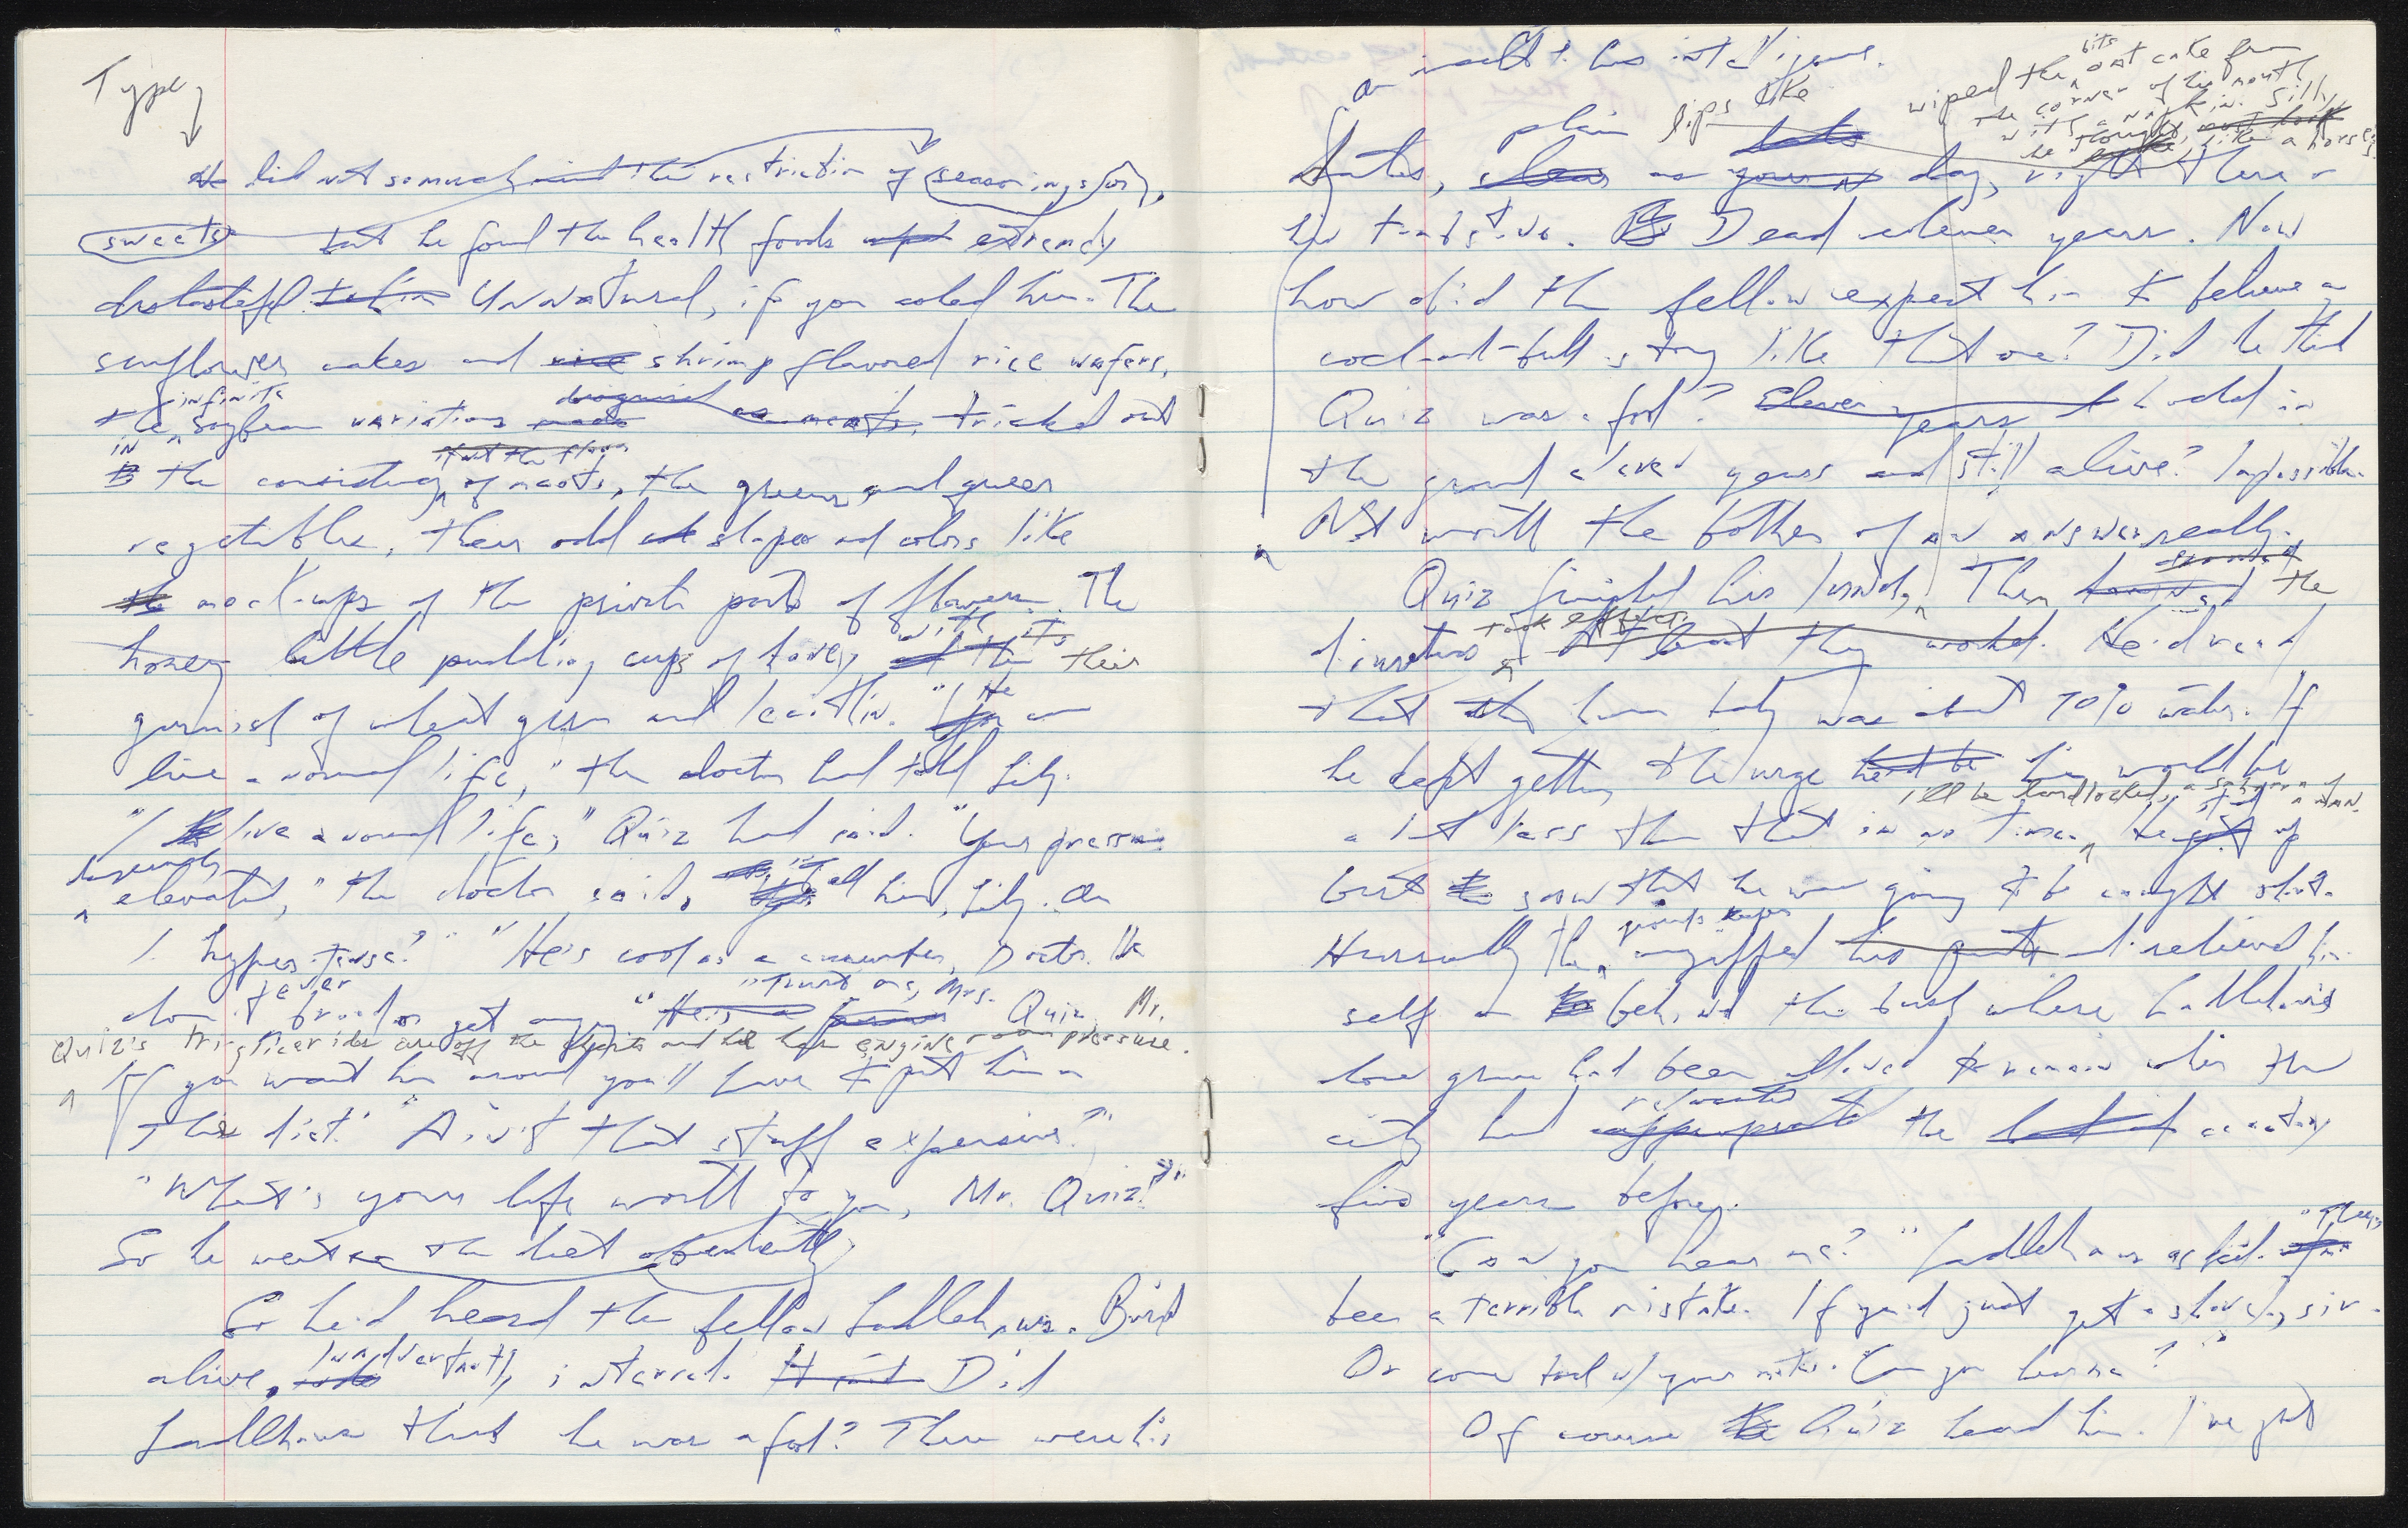 Type
He did not so much mind the restriction of seasonings or
sweets but he found the health foods extremely
distasteful to him Unnatural, if you asked him. The
sunflower cakes and rice shrimp flavored rice wafers,
the infinite soybean variations made disguised as meats, tricked out
in the consistency if not the flavor of meats, the greens and queer
vegetables, their odd shapes and colors like
the mock-ups of the private parts of flowers. The
honey little pudding cups of honey with their
garnish of wheat germ and lecithin. "He can
live a normal life," the doctor had told Lily.
"I live a normal life," Quiz had said. "Your pressure
dangerously elevated," the doctor said. tell him, Lily. Am
I hypertense?" "He's cool as a cucumber, Doctor. He
don't fever get angry." "He's a "Trust me, Mrs. Quiz. Mr.
Quiz's triglicerides are off the charts and he has engine room pressure.
If you want him around you'll have to put him on
this diet." "Ain't that stuff expensive?"
"What's your life worth to you, Mr. Quiz?"
So he went on the diet
So he'd heard the fellow Ladlehaus. Buried
alive, inadvertently interred. Did
Ladlehaus think he was a fool? There were his
an insult to his intelligence.
wiped the bits oat cake from
the corner of his mouth
with a napkin. Silly,
he thought, like a horse's
lips like
dates, plain as day, right there on
his tombstone. Dead eleven years. Now
how did the fellow expect him to believe a
cock-and-bull story like that one? Did he think
Quiz was a fool? Eleven years in
the ground eleven years and still alive? Impossible.
Not worth the bother of an answer, really.
Quiz finished his lunch. Then the
diuretics took effect. At least they worked. He'd read
that the human body was about 70% water. If
he kept getting the urge he'd be he would be
I'll be landlocked, a man.
a lot less than that in no time. He got up
but saw that he was going to be caught short.
Hurriedly he unzipped his pants and relieved him-
self on behind the bush where Ladlehaus's
lone grave had been allowed to remain when the
city had relocated appropriated the cemetery
five years before.
"Can you hear me?" Ladlehaus asked. "There's
been a terrible mistake. If you'd just get a shovel, sir.
Or come back w/ your mates. Can you hear me?"
Of course Quiz heard him. I've got